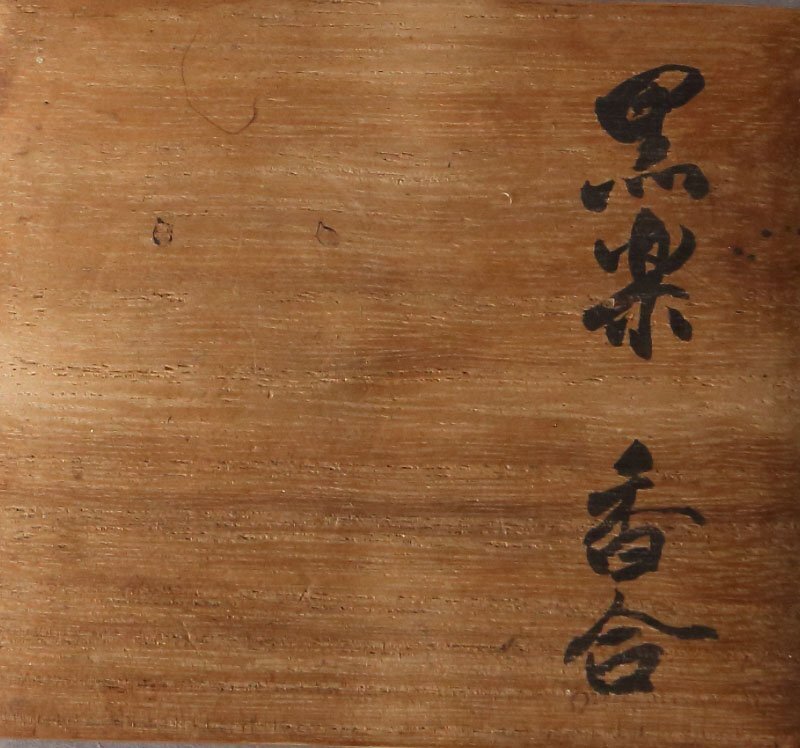 黒楽 香合